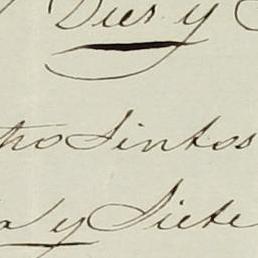 Dies y
tro Sintos
a y Siete